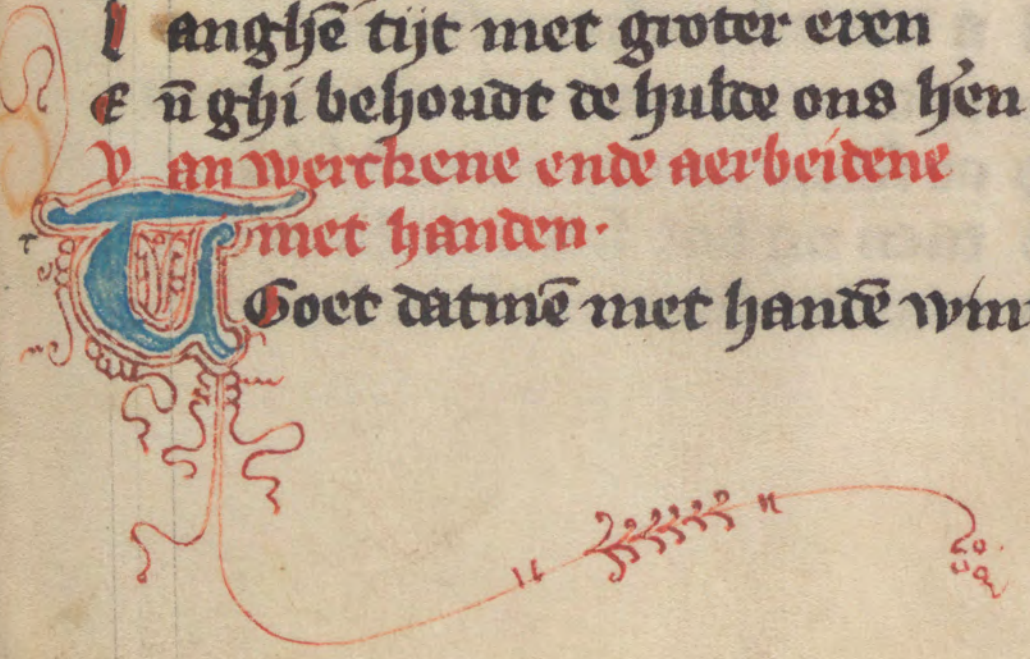 langhē tijt met groter eren
Eñ ghi behoudt de hulde ons h'en
Van werckene ende aerbeidene
met handen·
T Goet datmē met handē win